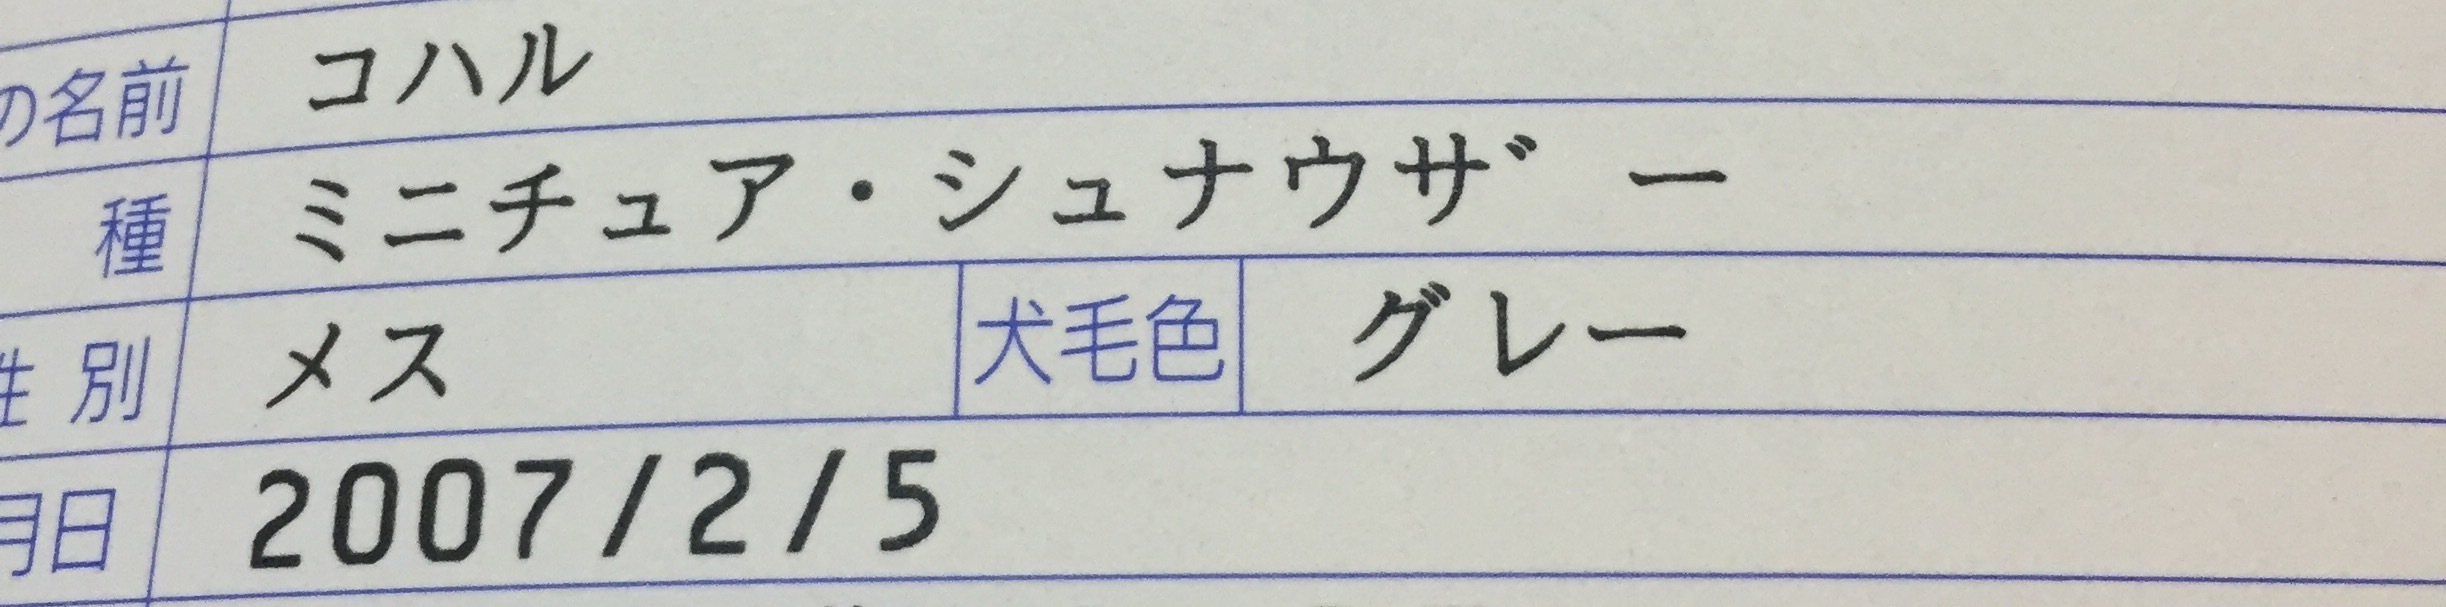 の名前 コハル
種 ミニチュア・シュナウザー
性別 メス 犬毛色 グレー
月日 2007/2/5